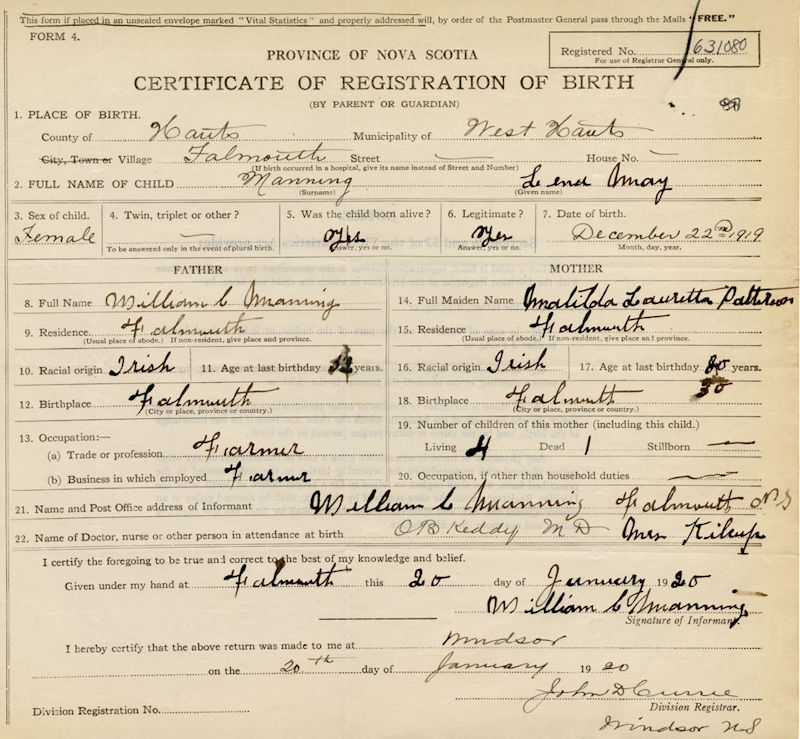 This form if placed in an unsealed envelope marked "Vital Statistics" and properly addressed will, by order of the Postmaster General pass through the Mails "FREE."
FORM 4.
Registered No. 631080
For use of Registrar General only.
PROVINCE OF NOVA SCOTIA
CERTIFICATE OF REGISTRATION OF BIRTH
(BY PARENT OR GUARDIAN)
1. PLACE OF BIRTH.
County of Hants Municipality of West Hants
City, Town or Village Falmouth Street — House No. —
(If birth occurred in a hospital, give its name instead of Street and Number)
2. FULL NAME OF CHILD Manning Lena May
(Surname) (Given name)
3. Sex of child. 4. Twin, triplet or other? 5. Was the child born alive? 6. Legitimate? 7. Date of birth.
Female — Yes Yes December 22nd 1919
To be answered only in the event of plural birth. Answer, yes or no. Answer, yes or no. Month, day, year.
FATHER MOTHER
8. Full Name William C Manning 14. Full Maiden Name Matilda Lauretta Patterson
9. Residence Falmouth 15. Residence Falmouth
(Usual place of abode.) If non-resident, give place and province. (Usual place of abode.) If non-resident, give place and province.
10. Racial origin Irish 11. Age at last birthday years. 16. Racial origin Irish 17. Age at last birthday years.
30
12. Birthplace Falmouth 18. Birthplace Falmouth
(City or place, province or country.) (City or place, province or country.)
13. Occupation:— 19. Number of children of this mother (including this child.)
(a) Trade or profession Farmer Living 4 Dead 1 Stillborn —
(b) Business in which employed Farmer 20. Occupation, if other than household duties —
21. Name and Post Office address of Informant William C Manning Falmouth N S
22. Name of Doctor, nurse or other person in attendance at birth O B Keddy M D Mrs Kilcup
I certify the foregoing to be true and correct to the best of my knowledge and belief.
Given under my hand at Falmouth this 20 day of January 1920
William C Manning
Signature of Informant.
I hereby certify that the above return was made to me at Windsor
on the 20th day of January 1920
John D Currie
Division Registrar.
Division Registration No.
Windsor N S